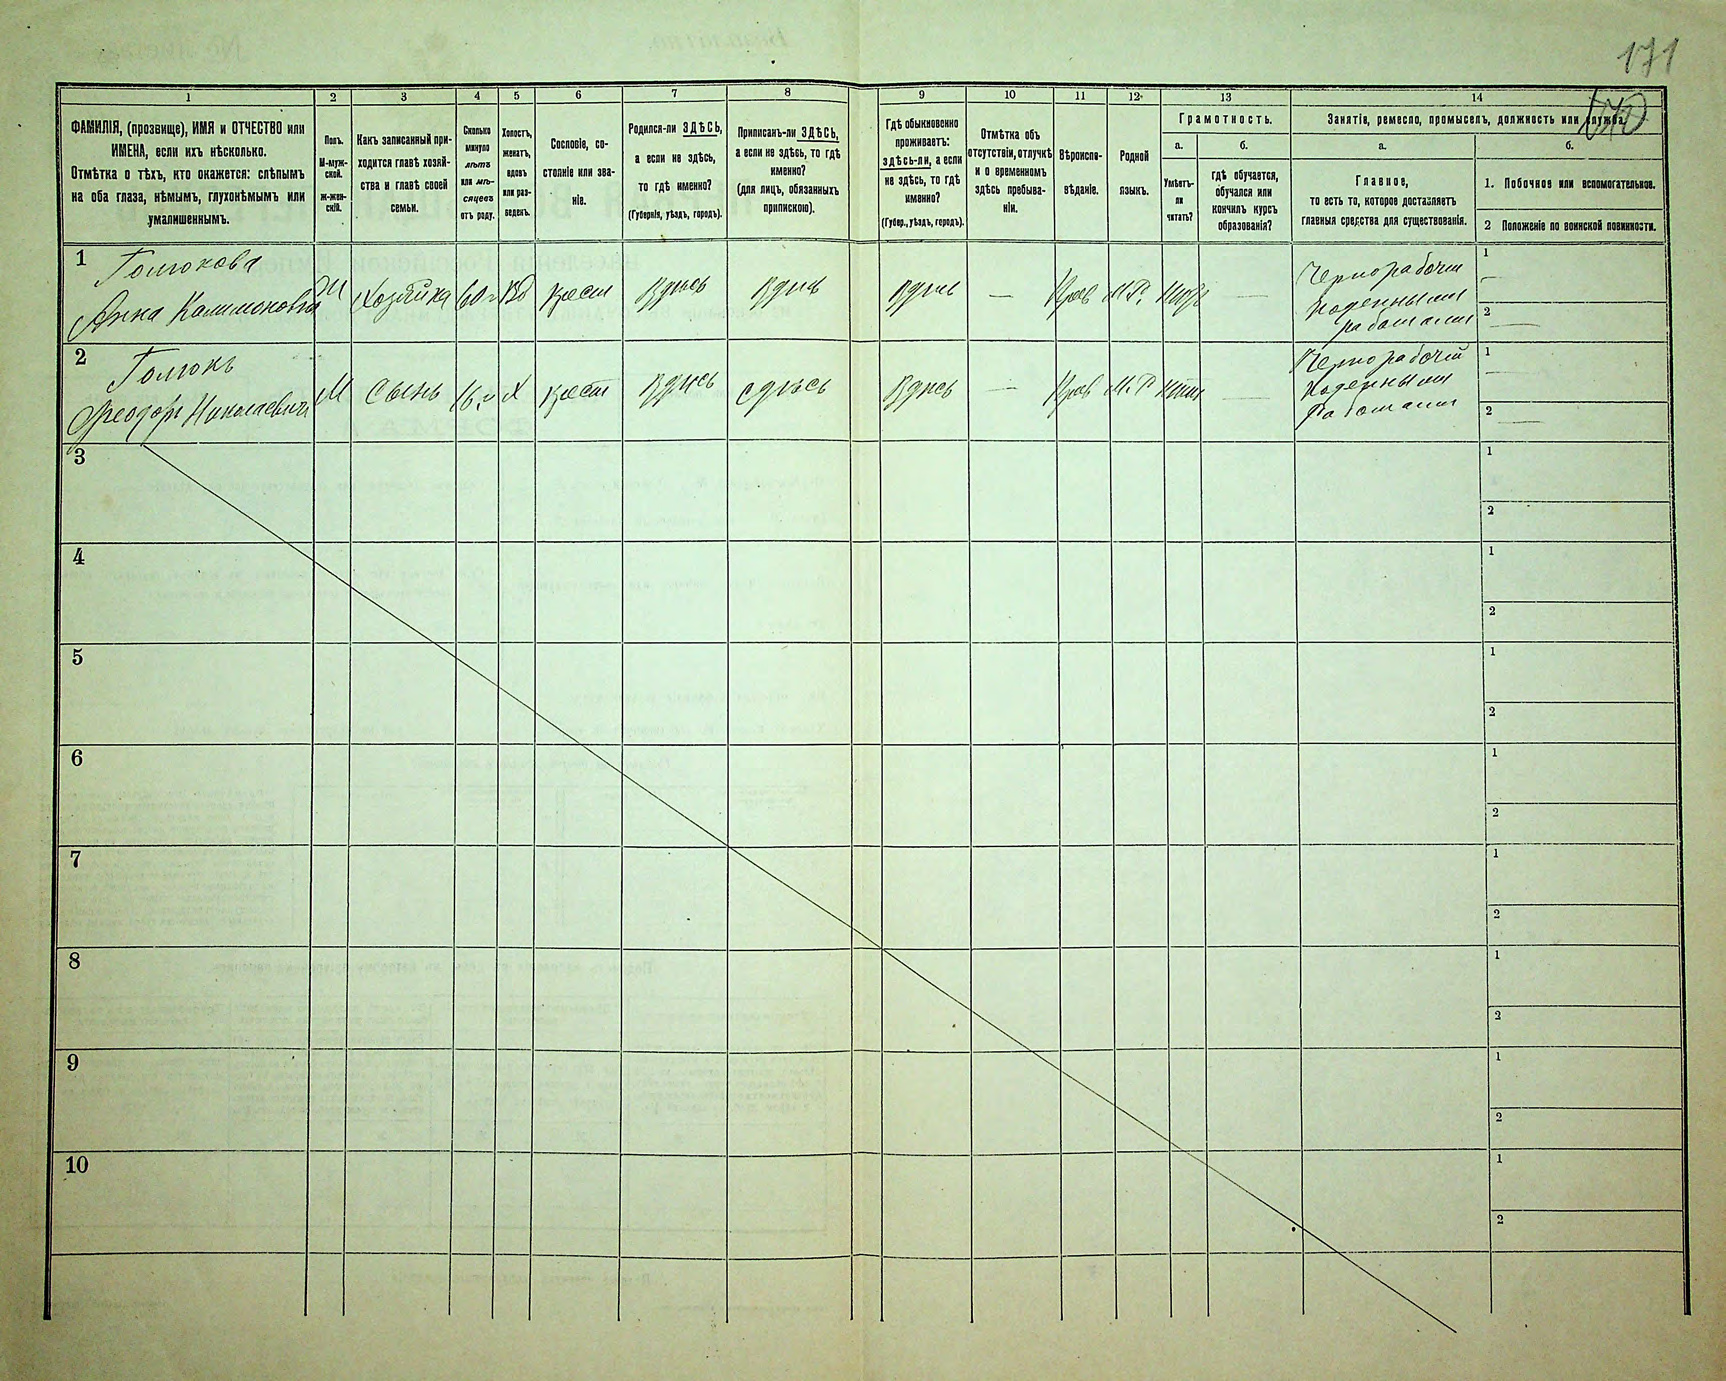 171
1
2
3
4
5
6
7
8
9
10
11
12
13
14
ФАМИЛІЯ, (прозвище), ИМЯ и ОТЧЕСТВО или
ИМЕНА, если ихъ нѣсколько.
Отмѣтка о тѣхъ, кто окажется: слѣпымъ
на оба глаза, нѣмымъ, глухонѣмымъ или
умалишеннымъ.
Полъ.
М-муж-
ской.
Ж-жен-
скій.
Какъ записанный при-
ходится главѣ хозяй-
ства и главѣ своей
семьи.
Сколько
минуло
лѣтъ
или мѣ-
сяцевъ
отъ роду.
Холостъ,
женатъ,
вдовъ
или раз-
веденъ.
Сословіе, со-
стояніе или зва-
ніе.
Родился-ли ЗДѢСЬ,
а если не здѣсь,
то гдѣ именно?
(Губернія, уѣздъ, городъ).
Приписанъ-ли ЗДѢСЬ,
а если не здѣсь, то гдѣ
именно?
(для лицъ, обязанныхъ
припискою).
Гдѣ обыкновенно
проживаетъ:
здѣсь-ли, а если
не здѣсь, то гдѣ
именно?
(Губер., уѣздъ, городъ).
Отмѣтка объ
отсутствіи, отлучкѣ
и о временномъ
здѣсь пребыва-
ніи.
Вѣроиспо-
вѣданіе.
Родной
языкъ.
Грамотность.
а.
Умѣетъ-
ли
читать?
б.
гдѣ обучается,
обучался или
кончилъ курсъ
образованія?
Занятіе, ремесло, промыселъ, должность или служба.
а.
Главное,
то есть то, которое доставляетъ
главныя средства для существованія.
б.
1. Побочное или вспомогательное.
2 Положеніе по воинской повинности.
1
Голюкова
Анна
Хозяйка
60
Вд
Крест
Здѣсь
Здѣсь
Здѣсь
—
Прав
М.Р.
—
Чернорабочій
Поденными
работами
1 —
2 —
2
Голюкъ
Феодоръ Николаевичъ
М
Сынъ
16
Х
Крест
Здѣсь
Здѣсь
Здѣсь
—
Прав
М.Р
—
Чернорабочій
Поденными
Работами
1 —
2 —
3
1
2
4
1
2
5
1
2
6
1
2
7
1
2
8
1
2
9
1
2
10
1
2